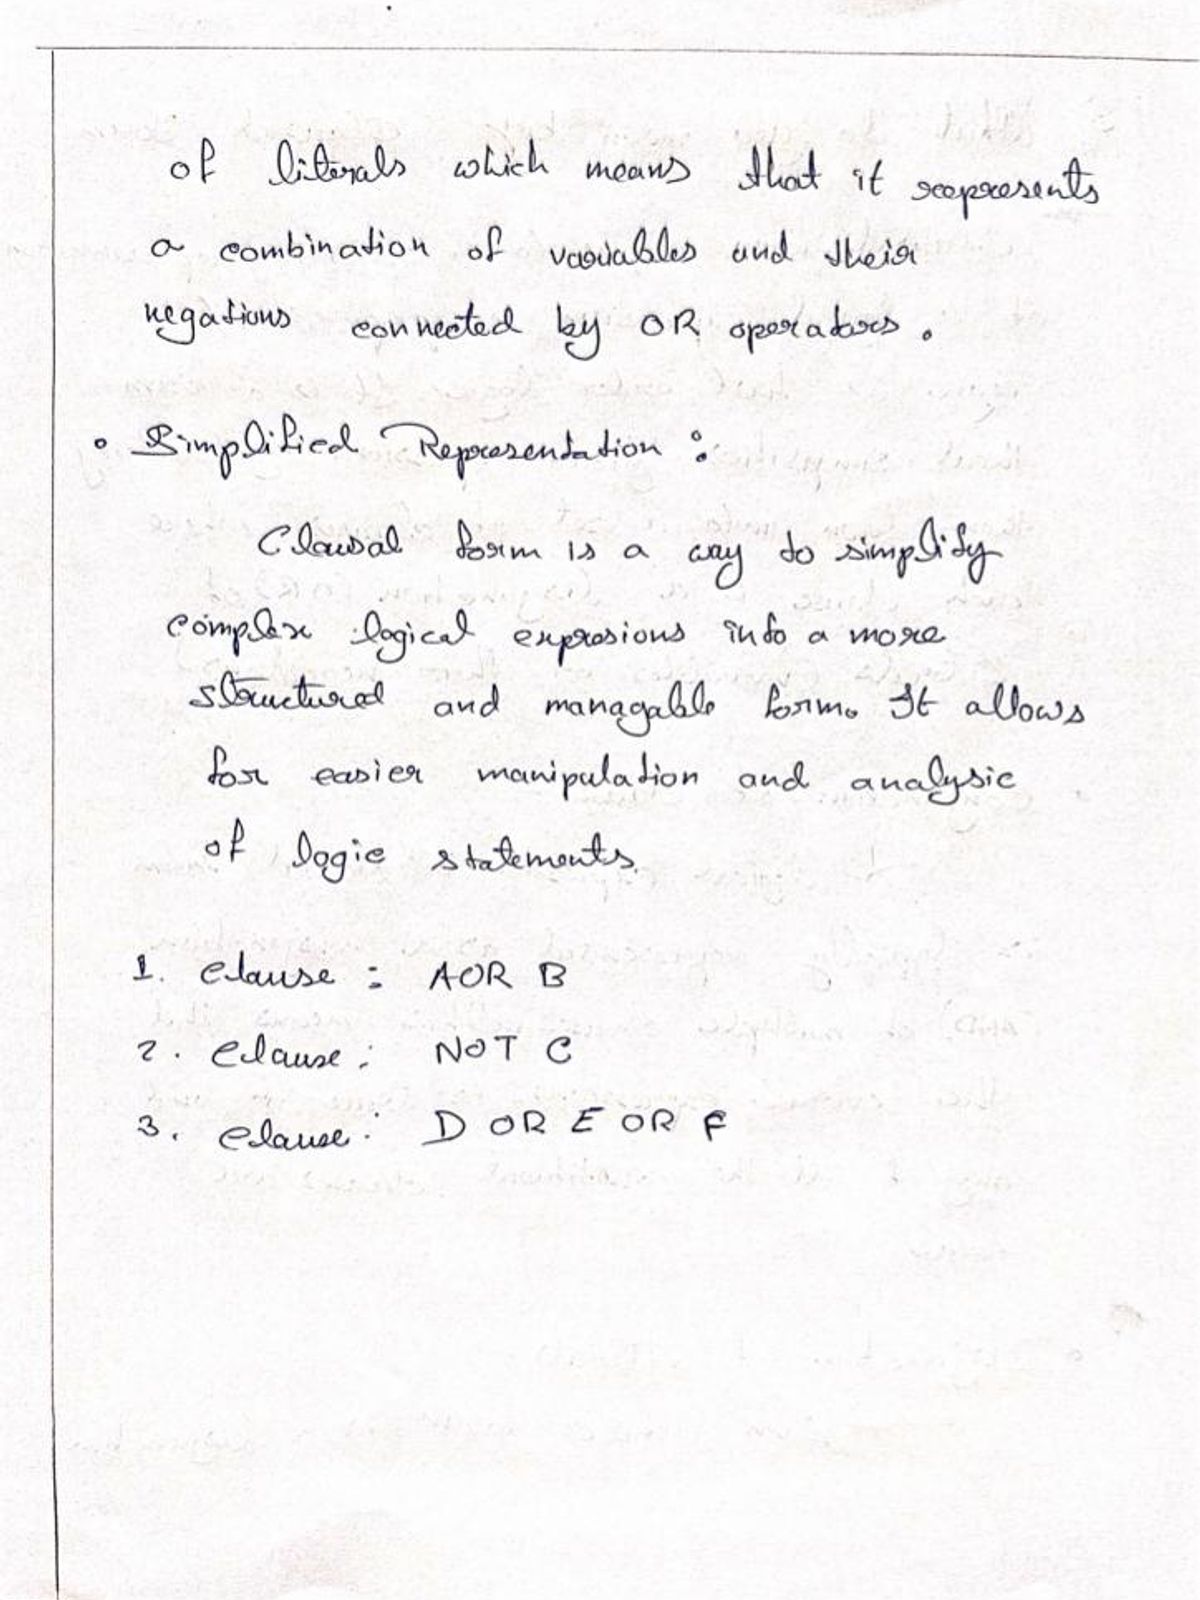 of literals which means that it represents
a combination of variables and their
negations connected by OR operators.
• Simplified Representation :
Clausal form is a way to simplify
complex logical expresions into a more
structured and managable form. It allows
for easier manipulation and analysic
of logic statements.
1. Clause : A OR B
2. Clause : NOT C
3. Clause : D OR E OR F